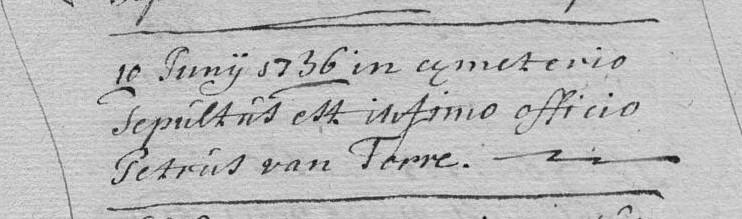 10 Junij 1736 in cymeterio
Sepultus est infimo officio
Petrus van Torre.